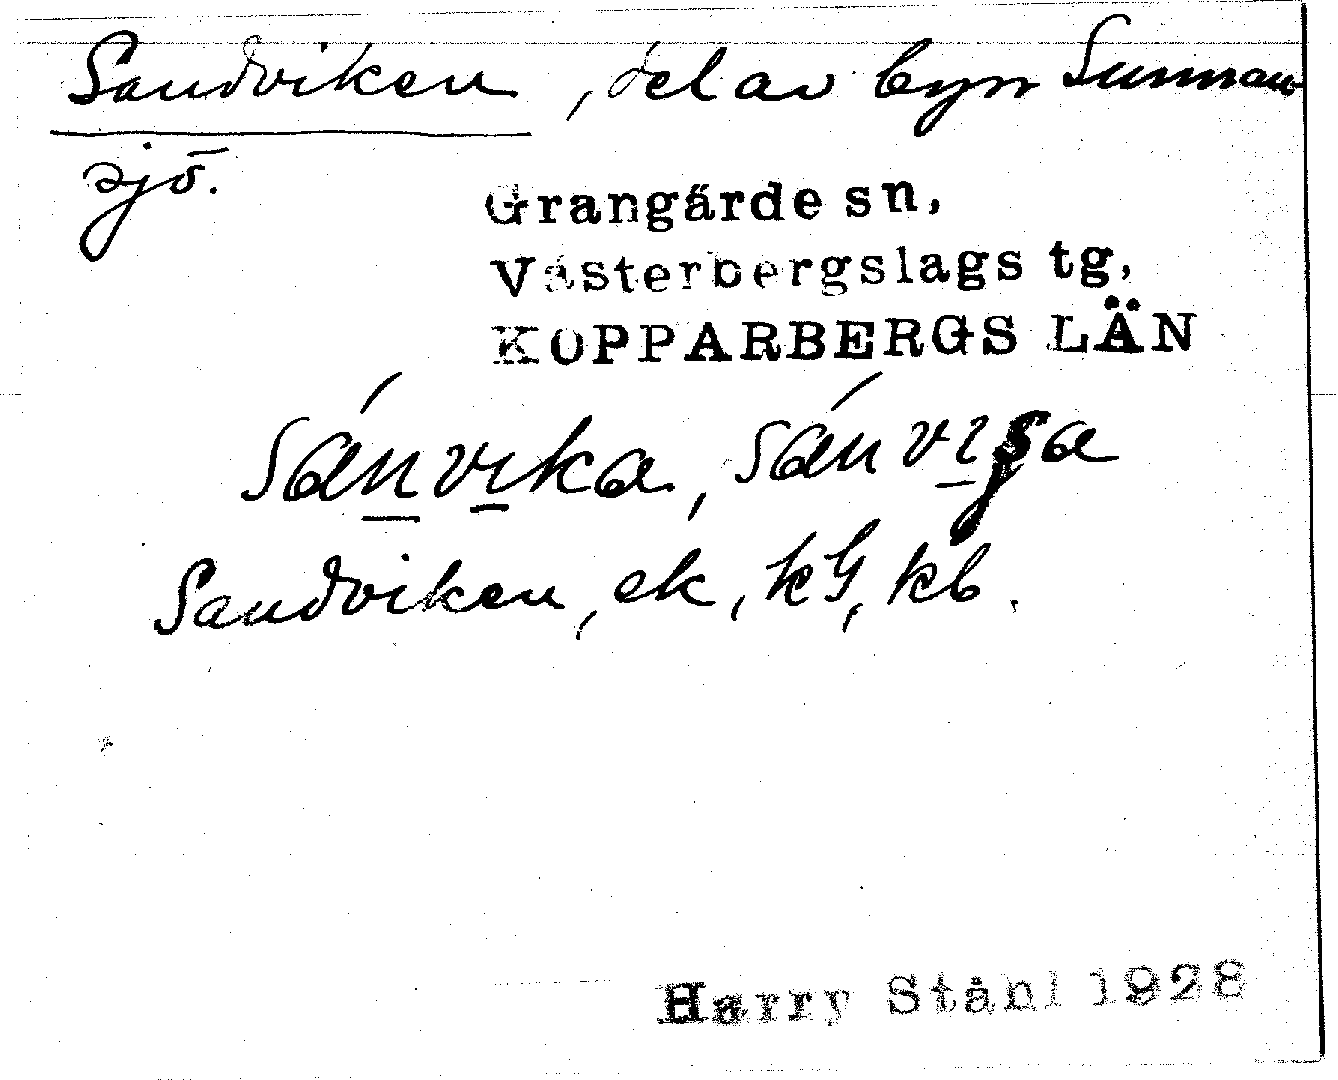 Sandviken, del av byn Sunnan
sjö.
Grangärde sn,
Västerbergslags tg,
KOPPARBERGS LÄN
sánvika, sánvi
Sandviken, ek, kG, kb.
Harry Ståhl 1928